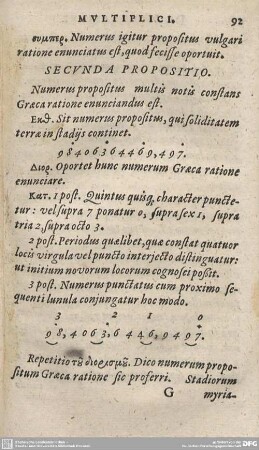 MVLTIPLICI. 92
συμπερ. Numerus igitur propositus vulgari
ratione enunciatus est, quod fecisse oportuit.
SECVNDA PROPOSITIO.
Numerus propositus multis notis constans
Græca ratione enunciandus est.
Εκθ. Sit numerus propositus, qui soliditatem
terræ in stadijs continet.
98406364469,497.
Διορ. Oportet hunc numerum Græca ratione
enunciare.
Κατ. 1 post. Quintus quisq́ character puncte-
tur: vel supra 7 ponatur 0, supra sex 1, supra
tria 2, supra octo 3.
2 post. Periodus quælibet, quæ constat quatuor
locis virgula vel puncto interjecto distinguatur:
ut initium novorum locorum cognosci possit.
3 post. Numerus punctatus cum proximo se-
quenti lunula conjungatur hoc modo.
3 2 1 0
98,4063,6446,9497.
Repetitio τοῦ διορισμοῦ. Dico numerum propo-
situm Græca ratione sic proferri. Stadiorum
G myria-